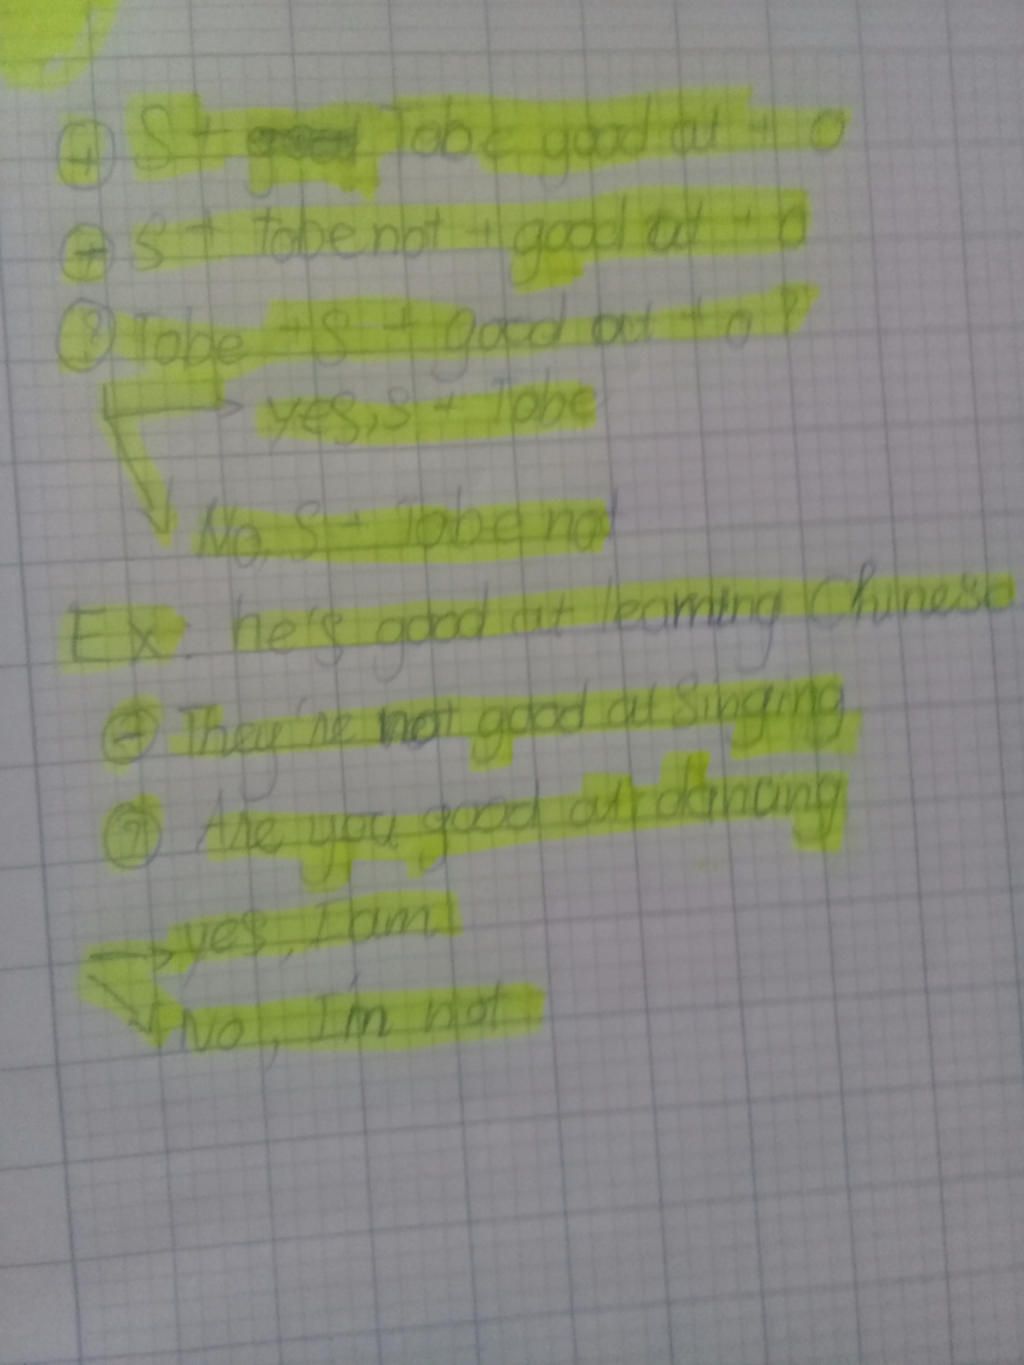 (+) S + Tobe good at + O
(-) S + Tobe not + good at + o
(?) Tobe + S + good at + o ?
→ yes, s + Tobe
No, S + Tobe not
Ex. he's good at learning Chinese
(-) They're not good at singing
(?) Are you good at dancing
→ yes, I am.
No, I'm not